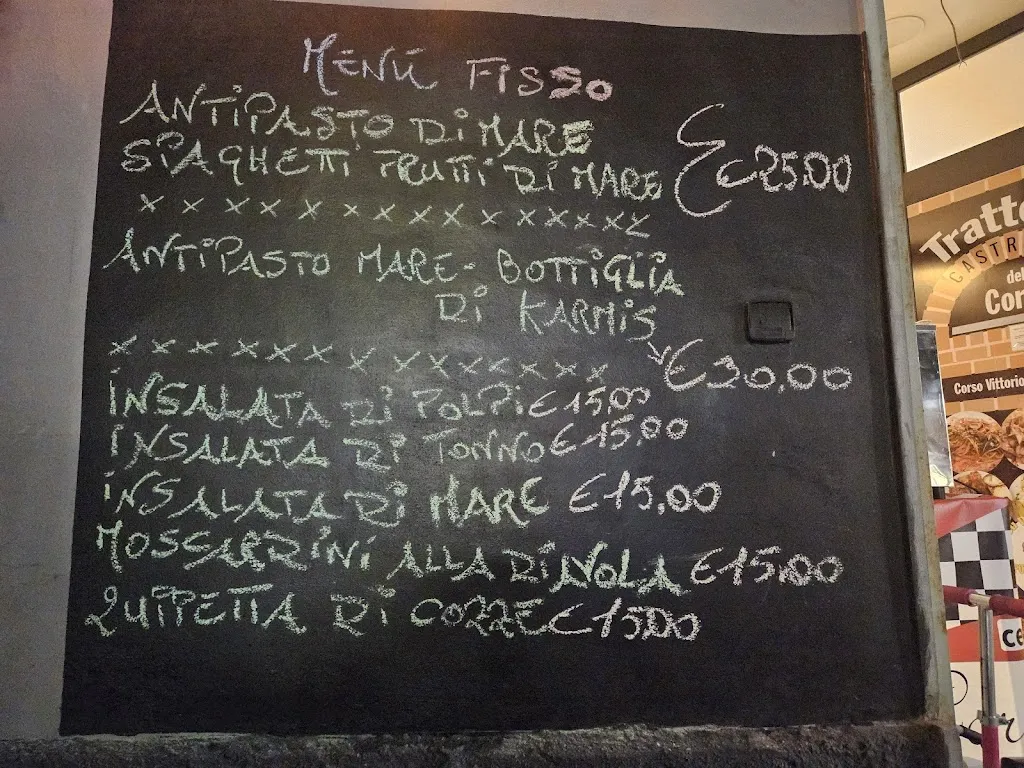 MENÚ FISSO
ANTIPASTO DI MARE
SPAGHETTI FRUTTI DI MARE
€25,00
x x x x x x x x x x x x x x x
ANTIPASTO MARE - BOTTIGLIA
DI KARMIS
€30,00
x x x x x x x x x x x x x
INSALATA DI POLPI €15,00
INSALATA DI TONNO €15,00
INSALATA DI MARE €15,00
MOSCARDINI ALLA DIAVOLA €15,00
ZUPPETTA DI COZZE €15,00
Tratto
CASTR
de
Cor
Corso Vittorio
ce